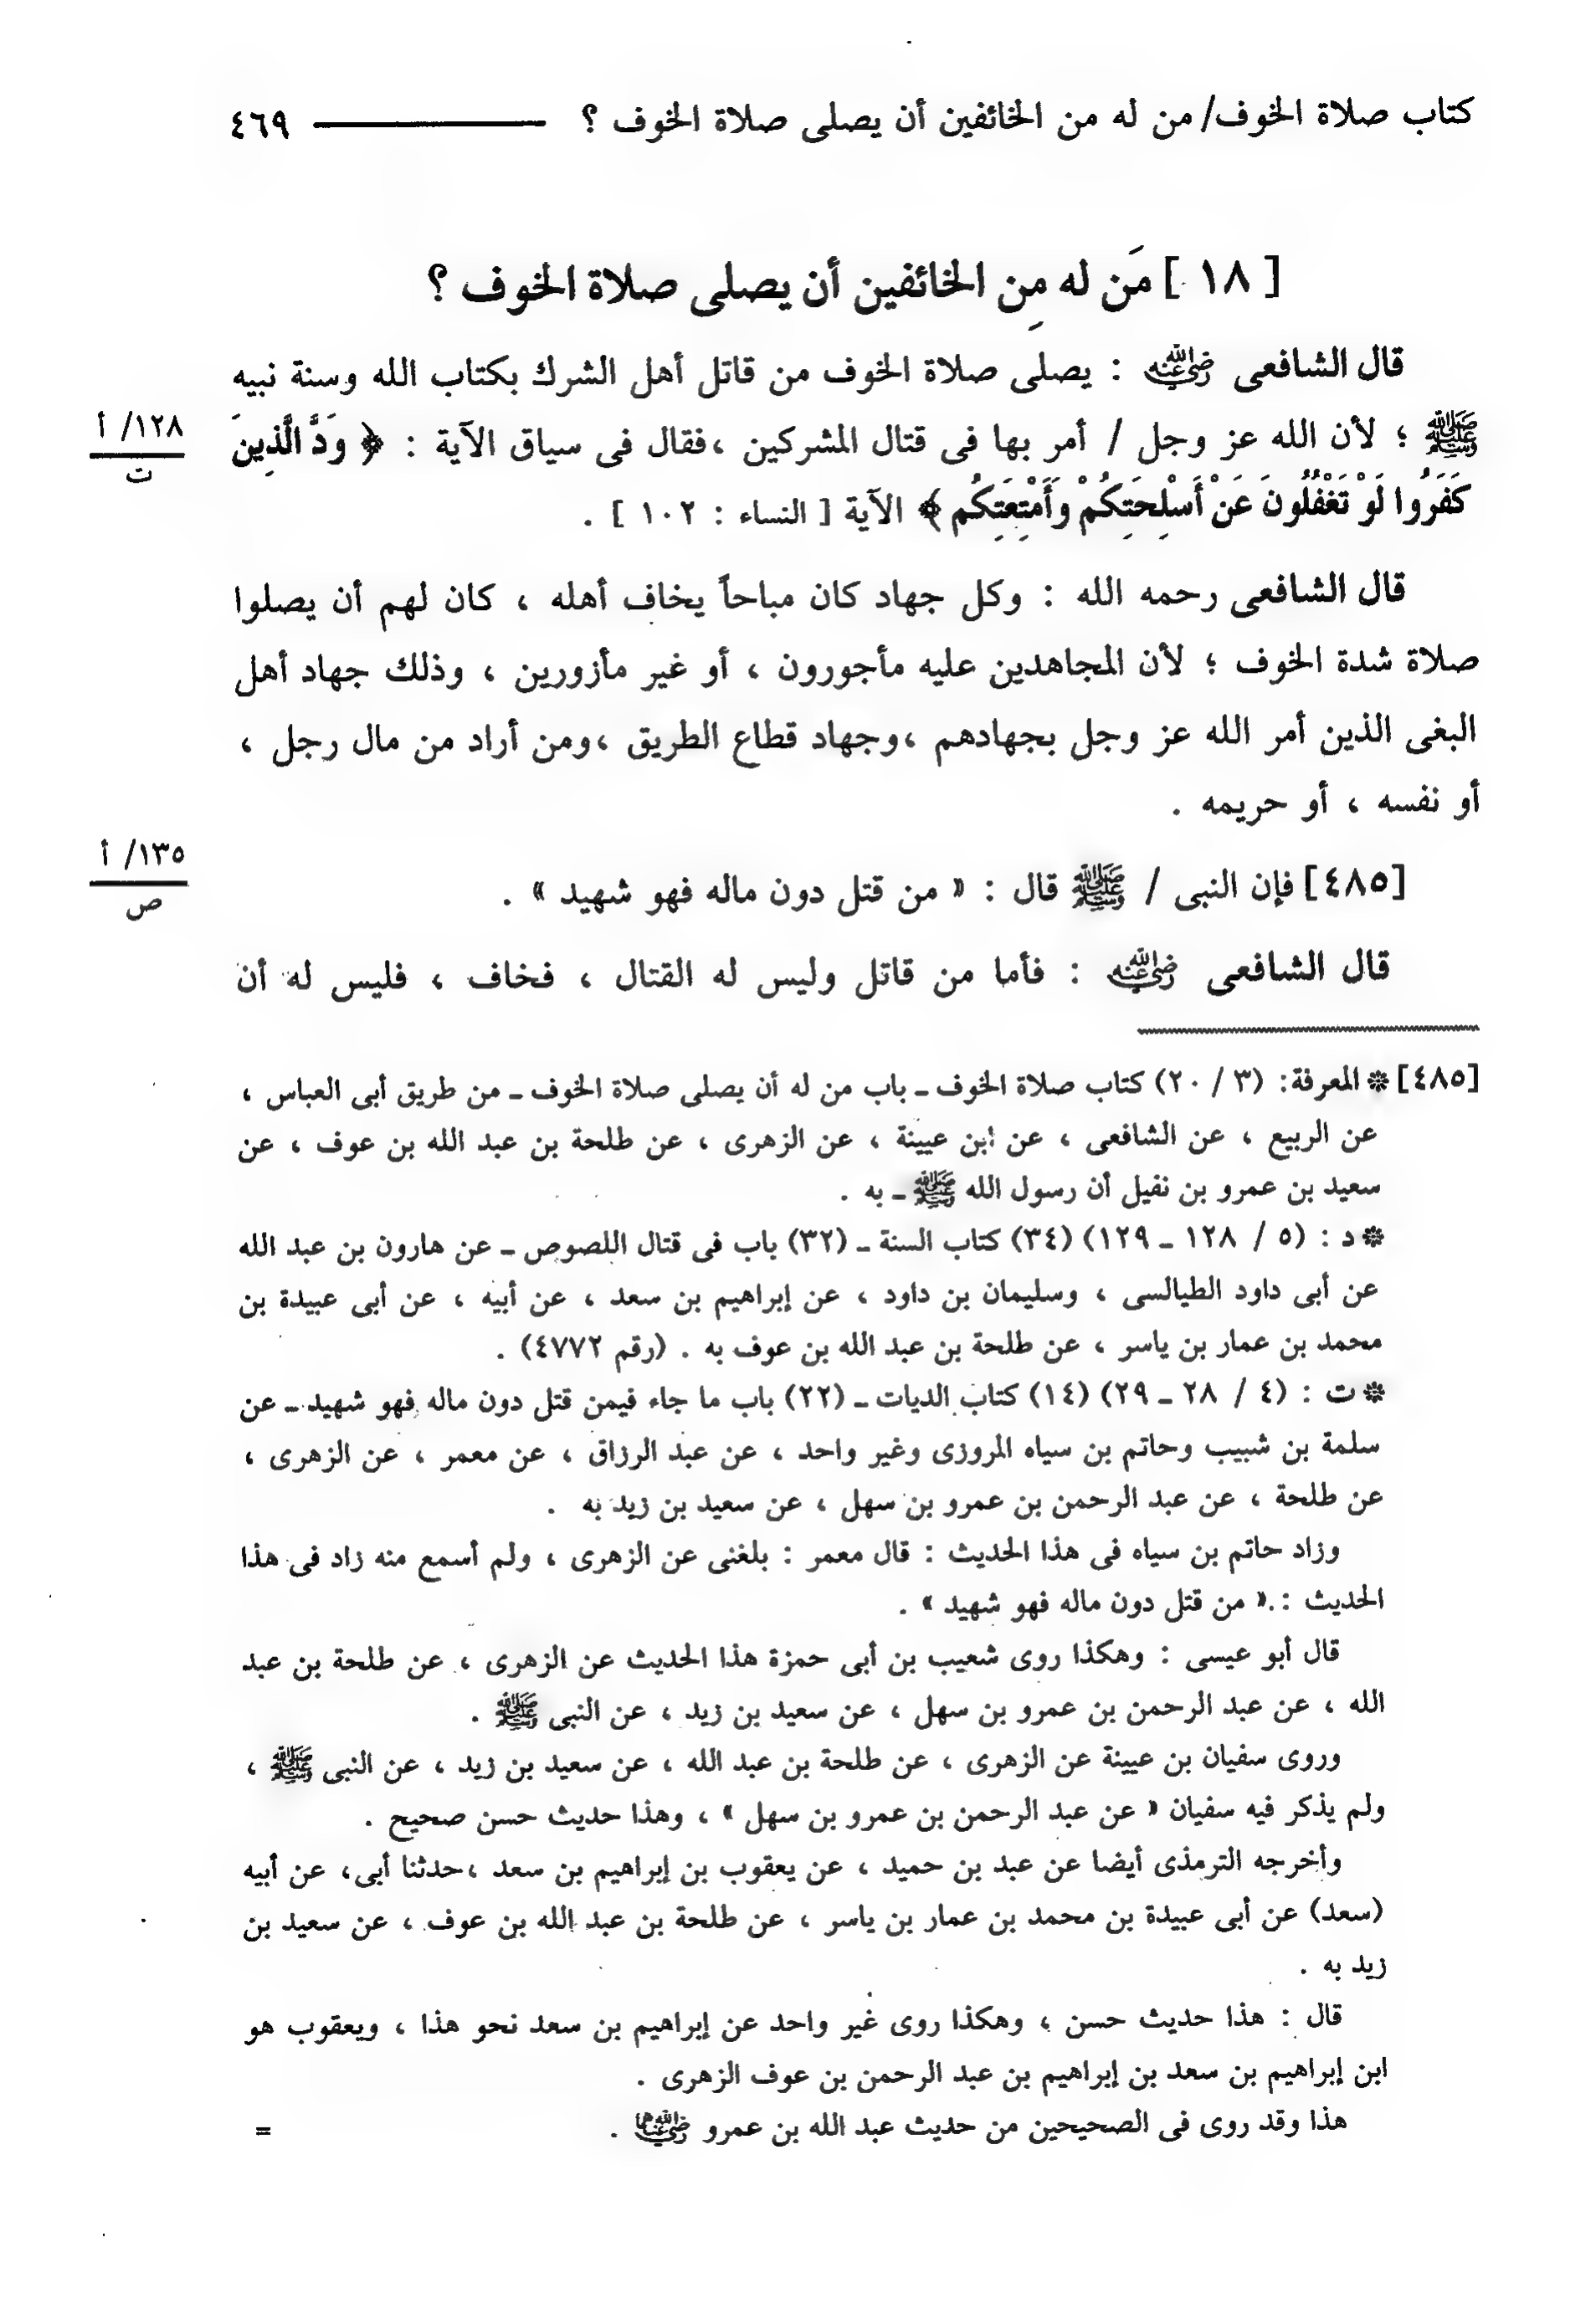 كتاب صلاة الخوف/ من له من الخائفين أن يصلى صلاة الخوف ؟ ٤٦٩
[ ١٨ ] مَن له مِن الخائفين أن يصلى صلاة الخوف ؟
قال الشافعى رضي الله عنه : يصلى صلاة الخوف من قاتل أهل الشرك بكتاب الله وسنة نبيه
ﷺ ؛ لأن الله عز وجل / أمر بها فى قتال المشركين ،فقال فى سياق الآية : ﴿ وَدَّ الَّذِينَ
١٢٨/ أ
ت
كَفَرُوا لَوْ تَغْفُلُونَ عَنْ أَسْلِحَتِكُمْ وَأَمْتِعَتِكُم ﴾ الآية [ النساء : ١٠٢ ] .
قال الشافعى رحمه الله : وكل جهاد كان مباحاً يخاف أهله ، كان لهم أن يصلوا
صلاة شدة الخوف ؛ لأن المجاهدين عليه مأجورون ، أو غير مأزورين ، وذلك جهاد أهل
البغى الذين أمر الله عز وجل بجهادهم ،وجهاد قطاع الطريق ،ومن أراد من مال رجل ،
أو نفسه ، أو حريمه .
١٣٥/ أ
ص
[٤٨٥] فإن النبى / ﷺ قال : « من قتل دون ماله فهو شهيد » .
قال الشافعى رضي الله عنه : فأما من قاتل وليس له القتال ، فخاف ، فليس له أن
[٤٨٥] * المعرفة: (٣ / ٢٠) كتاب صلاة الخوف ـ باب من له أن يصلى صلاة الخوف ـ من طريق أبى العباس ،
عن الربيع ، عن الشافعى ، عن ابن عيينة ، عن الزهرى ، عن طلحة بن عبد الله بن عوف ، عن
سعيد بن عمرو بن نفيل أن رسول الله ﷺ ـ به .
* د : (٥ / ١٢٨ ـ ١٢٩) (٣٤) كتاب السنة ـ (٣٢) باب فى قتال اللصوص ـ عن هارون بن عبد الله
عن أبى داود الطيالسى ، وسليمان بن داود ، عن إبراهيم بن سعد ، عن أبيه ، عن أبى عبيدة بن
محمد بن عمار بن ياسر ، عن طلحة بن عبد الله بن عوف به . (رقم ٤٧٧٢) .
* ت : (٤ / ٢٨ ـ ٢٩) (١٤) كتاب الديات ـ (٢٢) باب ما جاء فيمن قتل دون ماله فهو شهيد ـ عن
سلمة بن شبيب وحاتم بن سياه المروزى وغير واحد ، عن عبد الرزاق ، عن معمر ، عن الزهرى ،
عن طلحة ، عن عبد الرحمن بن عمرو بن سهل ، عن سعيد بن زيد به .
وزاد حاتم بن سياه فى هذا الحديث : قال معمر : بلغنى عن الزهرى ، ولم أسمع منه زاد فى هذا
الحديث : « من قتل دون ماله فهو شهيد » .
قال أبو عيسى : وهكذا روى شعيب بن أبى حمزة هذا الحديث عن الزهرى ، عن طلحة بن عبد
الله ، عن عبد الرحمن بن عمرو بن سهل ، عن سعيد بن زيد ، عن النبى ﷺ .
وروى سفيان بن عيينة عن الزهرى ، عن طلحة بن عبد الله ، عن سعيد بن زيد ، عن النبى ﷺ ،
ولم يذكر فيه سفيان « عن عبد الرحمن بن عمرو بن سهل » ، وهذا حديث حسن صحيح .
وأخرجه الترمذى أيضا عن عبد بن حميد ، عن يعقوب بن إبراهيم بن سعد ،حدثنا أبى، عن أبيه
(سعد) عن أبى عبيدة بن محمد بن عمار بن ياسر ، عن طلحة بن عبد الله بن عوف ، عن سعيد بن
زيد به .
قال : هذا حديث حسن ، وهكذا روى غير واحد عن إبراهيم بن سعد نحو هذا ، ويعقوب هو
ابن إبراهيم بن سعد بن إبراهيم بن عبد الرحمن بن عوف الزهرى .
هذا وقد روى فى الصحيحين من حديث عبد الله بن عمرو رضي الله عنهما . =